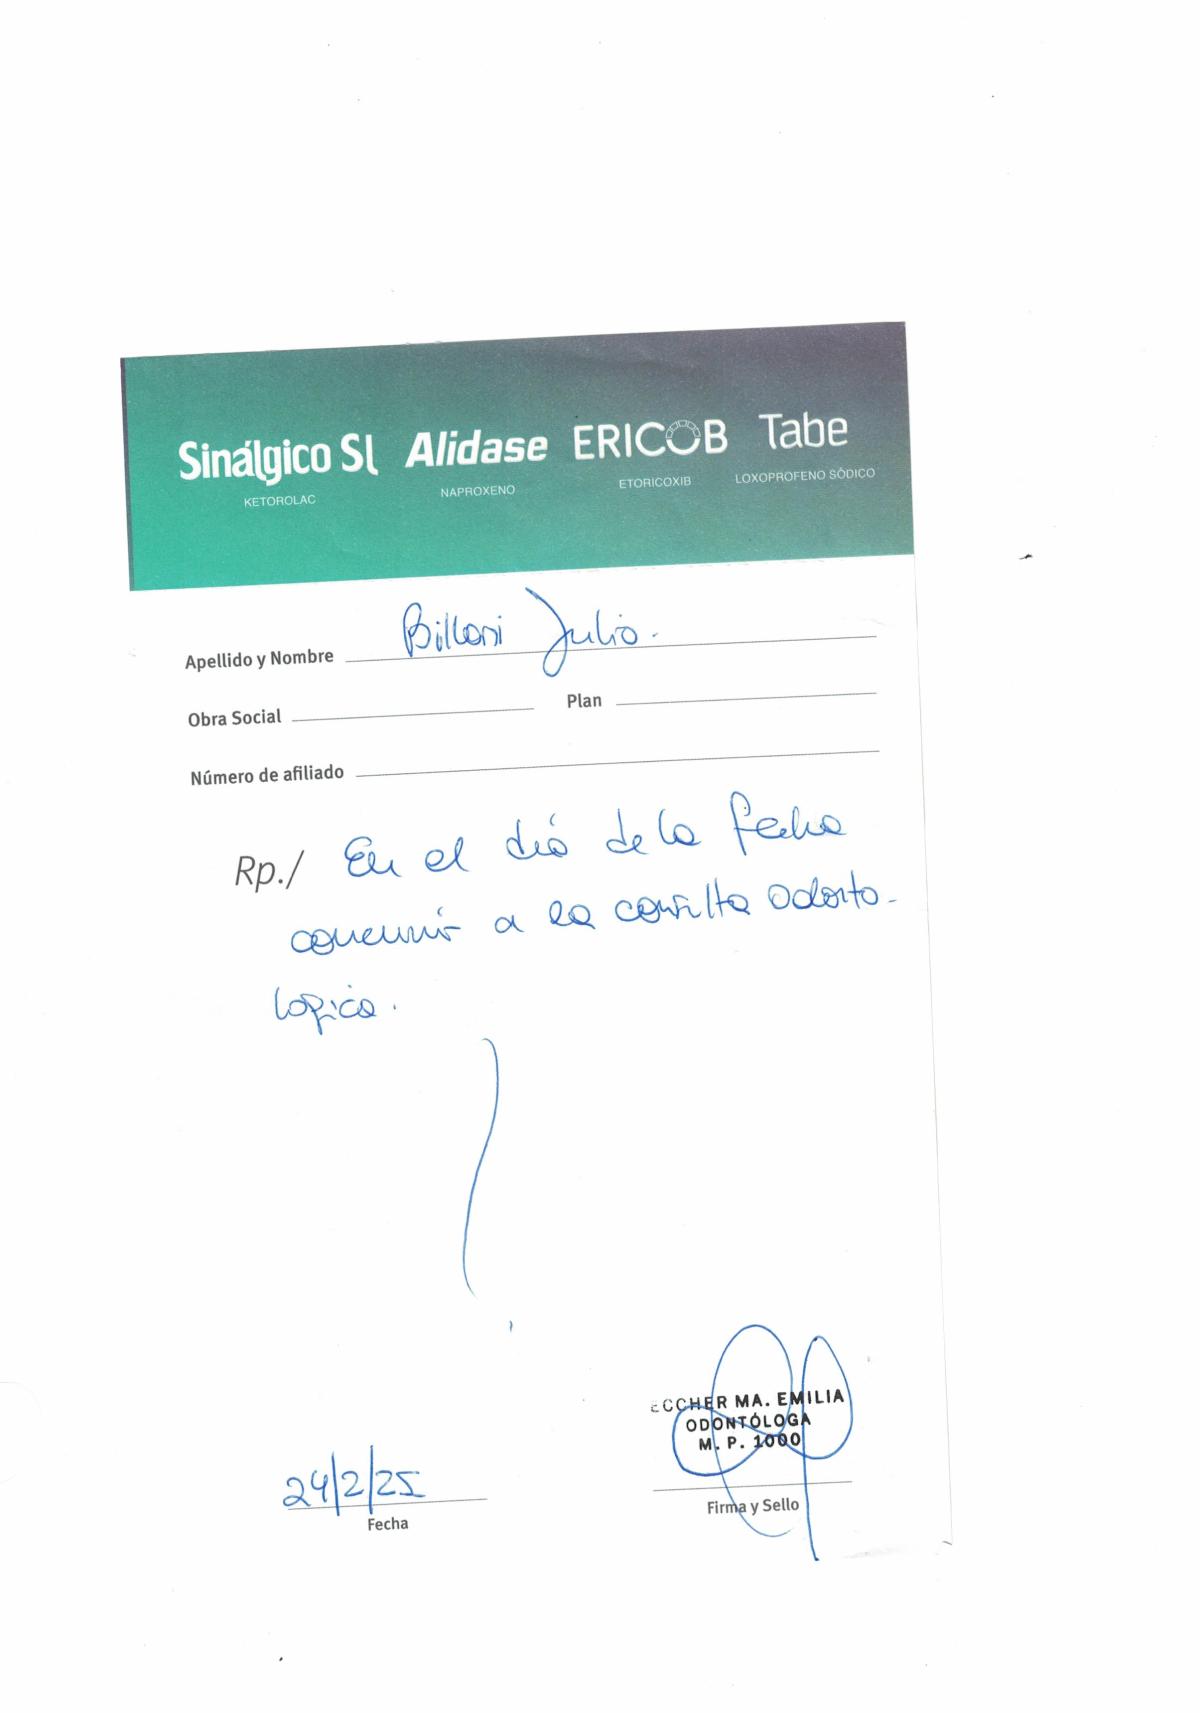 Sinálgico SL Alidase ERICOB Tabe
KETOROLAC NAPROXENO ETORICOXIB LOXOPROFENO SÓDICO
Apellido y Nombre Billoni Julio.
Obra Social Plan
Número de afiliado
Rp./ En el día de la fecha
concurrió a la consulta Odonto-
logica.
ECCHER MA. EMILIA
ODONTÓLOGA
M. P. 1000
24/2/25
Fecha
Firma y Sello